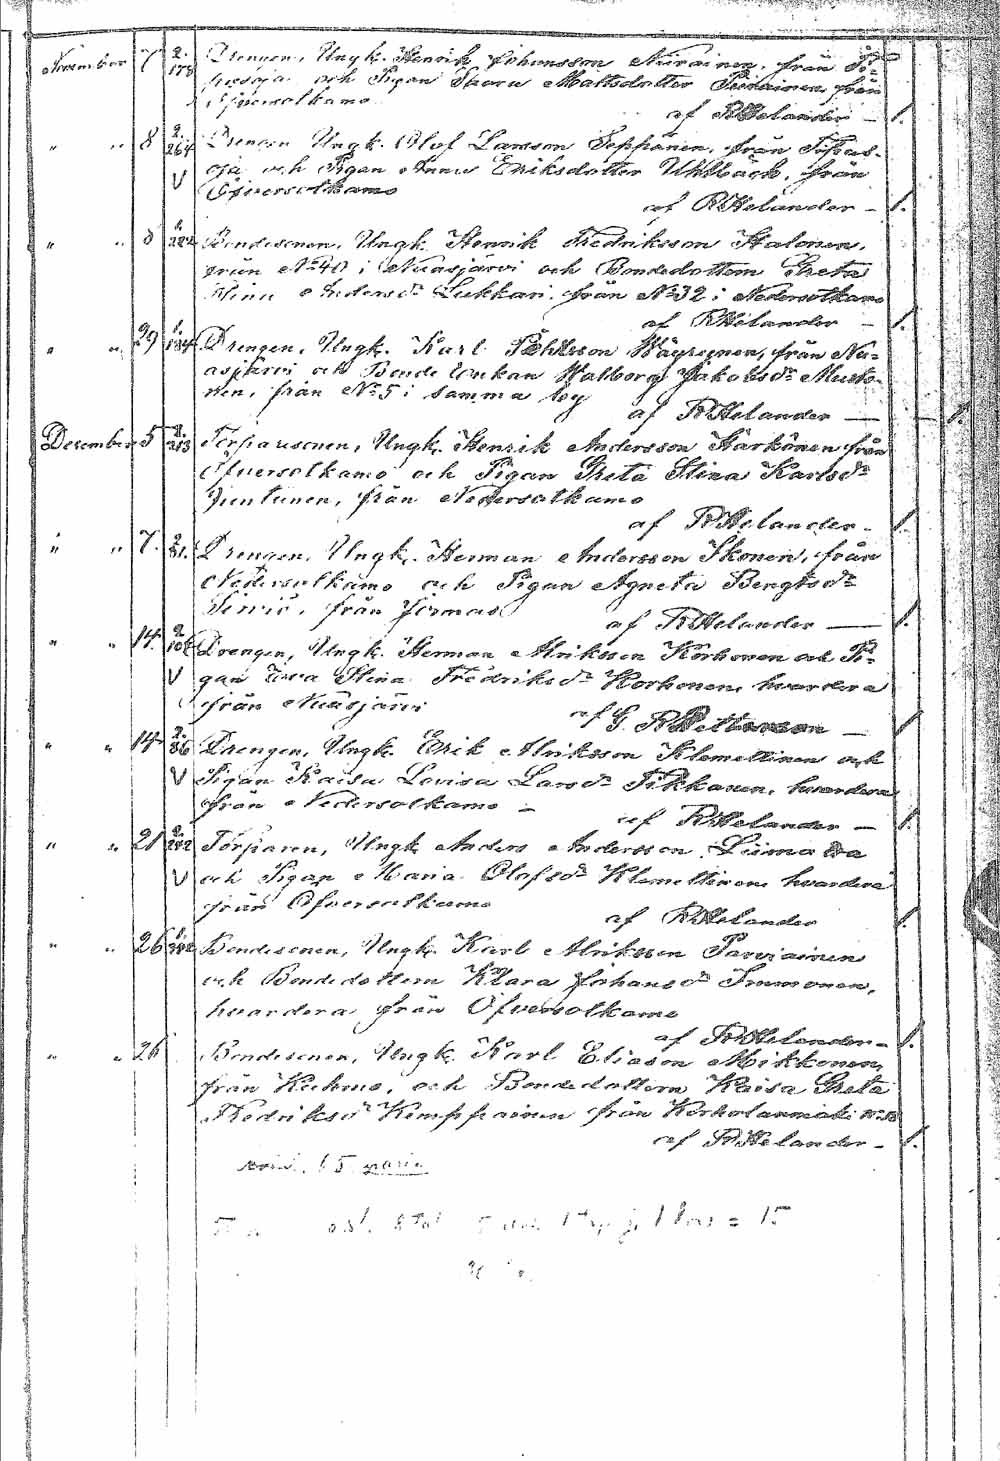 November 7 2. 178 Drengen, Ungk. Henrik Johansson Nurainen, från Ti-
pasoja och Pigan Mattsdotter Piirainen från
Öfversotkamo
af R Helander – 1.
" " 8 2. 264 Drengen Ungk. Olof Larsson Seppänen, från Tipas-
oja och Pigan Anna Eriksdotter Uhlbäck, från
V Öfversotkamo
af R Helander – 1.
" " 8 Bondesonen, Ungk. Henrik Fredriksson Halonen,
från No 40 i Nuasjärvi och Bondedottern Greta
Stina Anders dr Lukkari från No 32 i Nedersotkamo
af R Helander – 1.
" " 29 1. 184 Drengen, Ungk. Karl Wäyrynen, från Nu-
asjärvi och Bonde Enkan Walborg Jakobs dr Musto-
nen, från No 5 i samma by
af R Helander — 1.
December 5 2. 283 Torparsonen, Ungk. Henrik Andersson Härkönen från
Öfversotkamo och Pigan Greta Stina Karls dr
Juntunen, från Nedersotkamo
af R Helander – 1.
" " 7. 2. 81. Drengen, Ungk. Herman Andersson Ikonen, från
Nedersotkamo och Pigan Agneta Bengts dr
Sirviö, från Jormas
af R Helander — 1.
" " 14. 2. 102 Drengen, Ungk. Herman Alriksson Korhonen och Pi-
V gan Ewa Stina Fredriks dr Korhonen, hvardera
från Nuasjärvi
af G. R Petterson — 1
" " 14 2. 86 Drengen, Ungk. Erik Alriksson Klemettinen och
V Pigan Kaisa Lovisa Lars dr Tikkanen, hvardera
från Nedersotkamo –
af R Helander – 1.
" " 21 2. 282 Torparen, Ungk. Anders Andersson Liimatta
V och Pigan Maria Olofs dr Klemettinen hvardera
från Öfversotkamo
af R Helander 1.
" " 26 Bondesonen, Ungk. Karl Alriksson Parviainen
och Bondedottern Klara Johans dr Immonen,
hvardera från Öfversotkamo
af R Helander – 1.
" " 26 Bondesonen, Ungk. Karl Eliason Mikkonen,
från Kuhmo, och Bondedottern Kaisa Greta
Fredriks dr Kemppainen från Korholanmäki No 18
af R Helander – 1.
15 paria
= 15